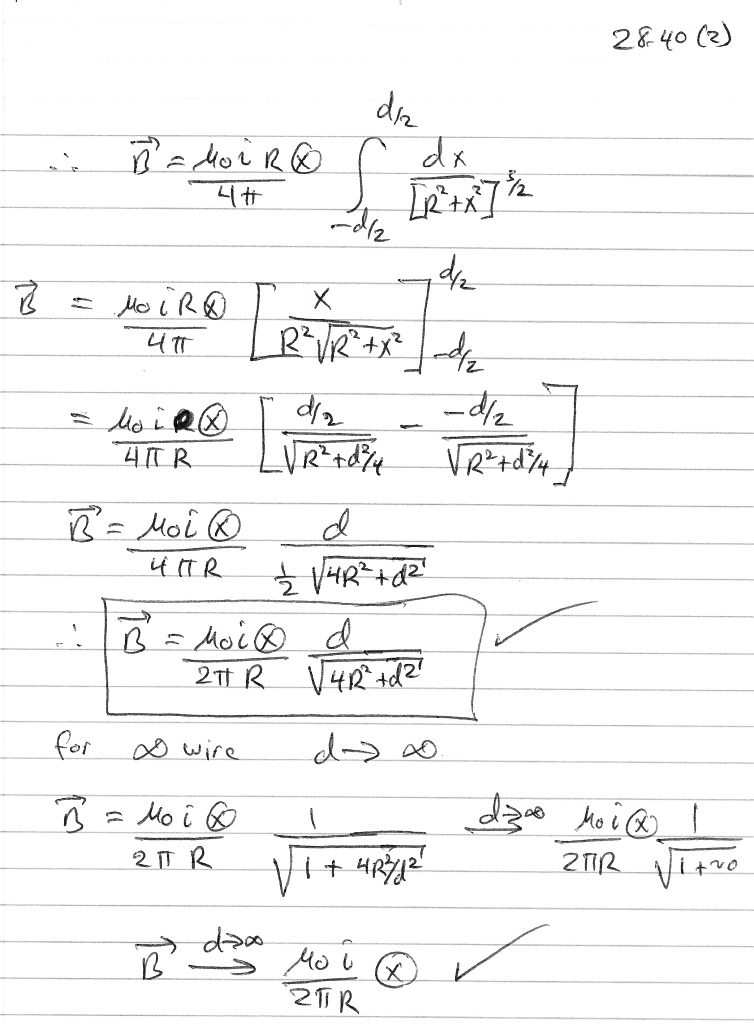 28-40 (2)
∴ B⃗ = μ₀ i R ⊗ / 4π ∫_{-d/2}^{d/2} dx / [R² + x²]^{3/2}
B⃗ = μ₀ i R ⊗ / 4π [ x / R² √(R² + x²) ]_{-d/2}^{d/2}
= μ₀ i ⊗ / 4π R [ d/2 / √(R² + d²/4) − -d/2 / √(R² + d²/4) ]
B⃗ = μ₀ i ⊗ / 4π R d / ½ √(4R² + d²)
∴ B⃗ = μ₀ i ⊗ / 2π R d / √(4R² + d²) ✓
for ∞ wire d → ∞
B⃗ = μ₀ i ⊗ / 2π R 1 / √(1 + 4R²/d²) d→∞ → μ₀ i ⊗ / 2πR 1 / √(1 + ~0)
B⃗ d→∞ → μ₀ i / 2π R ⊗ ✓